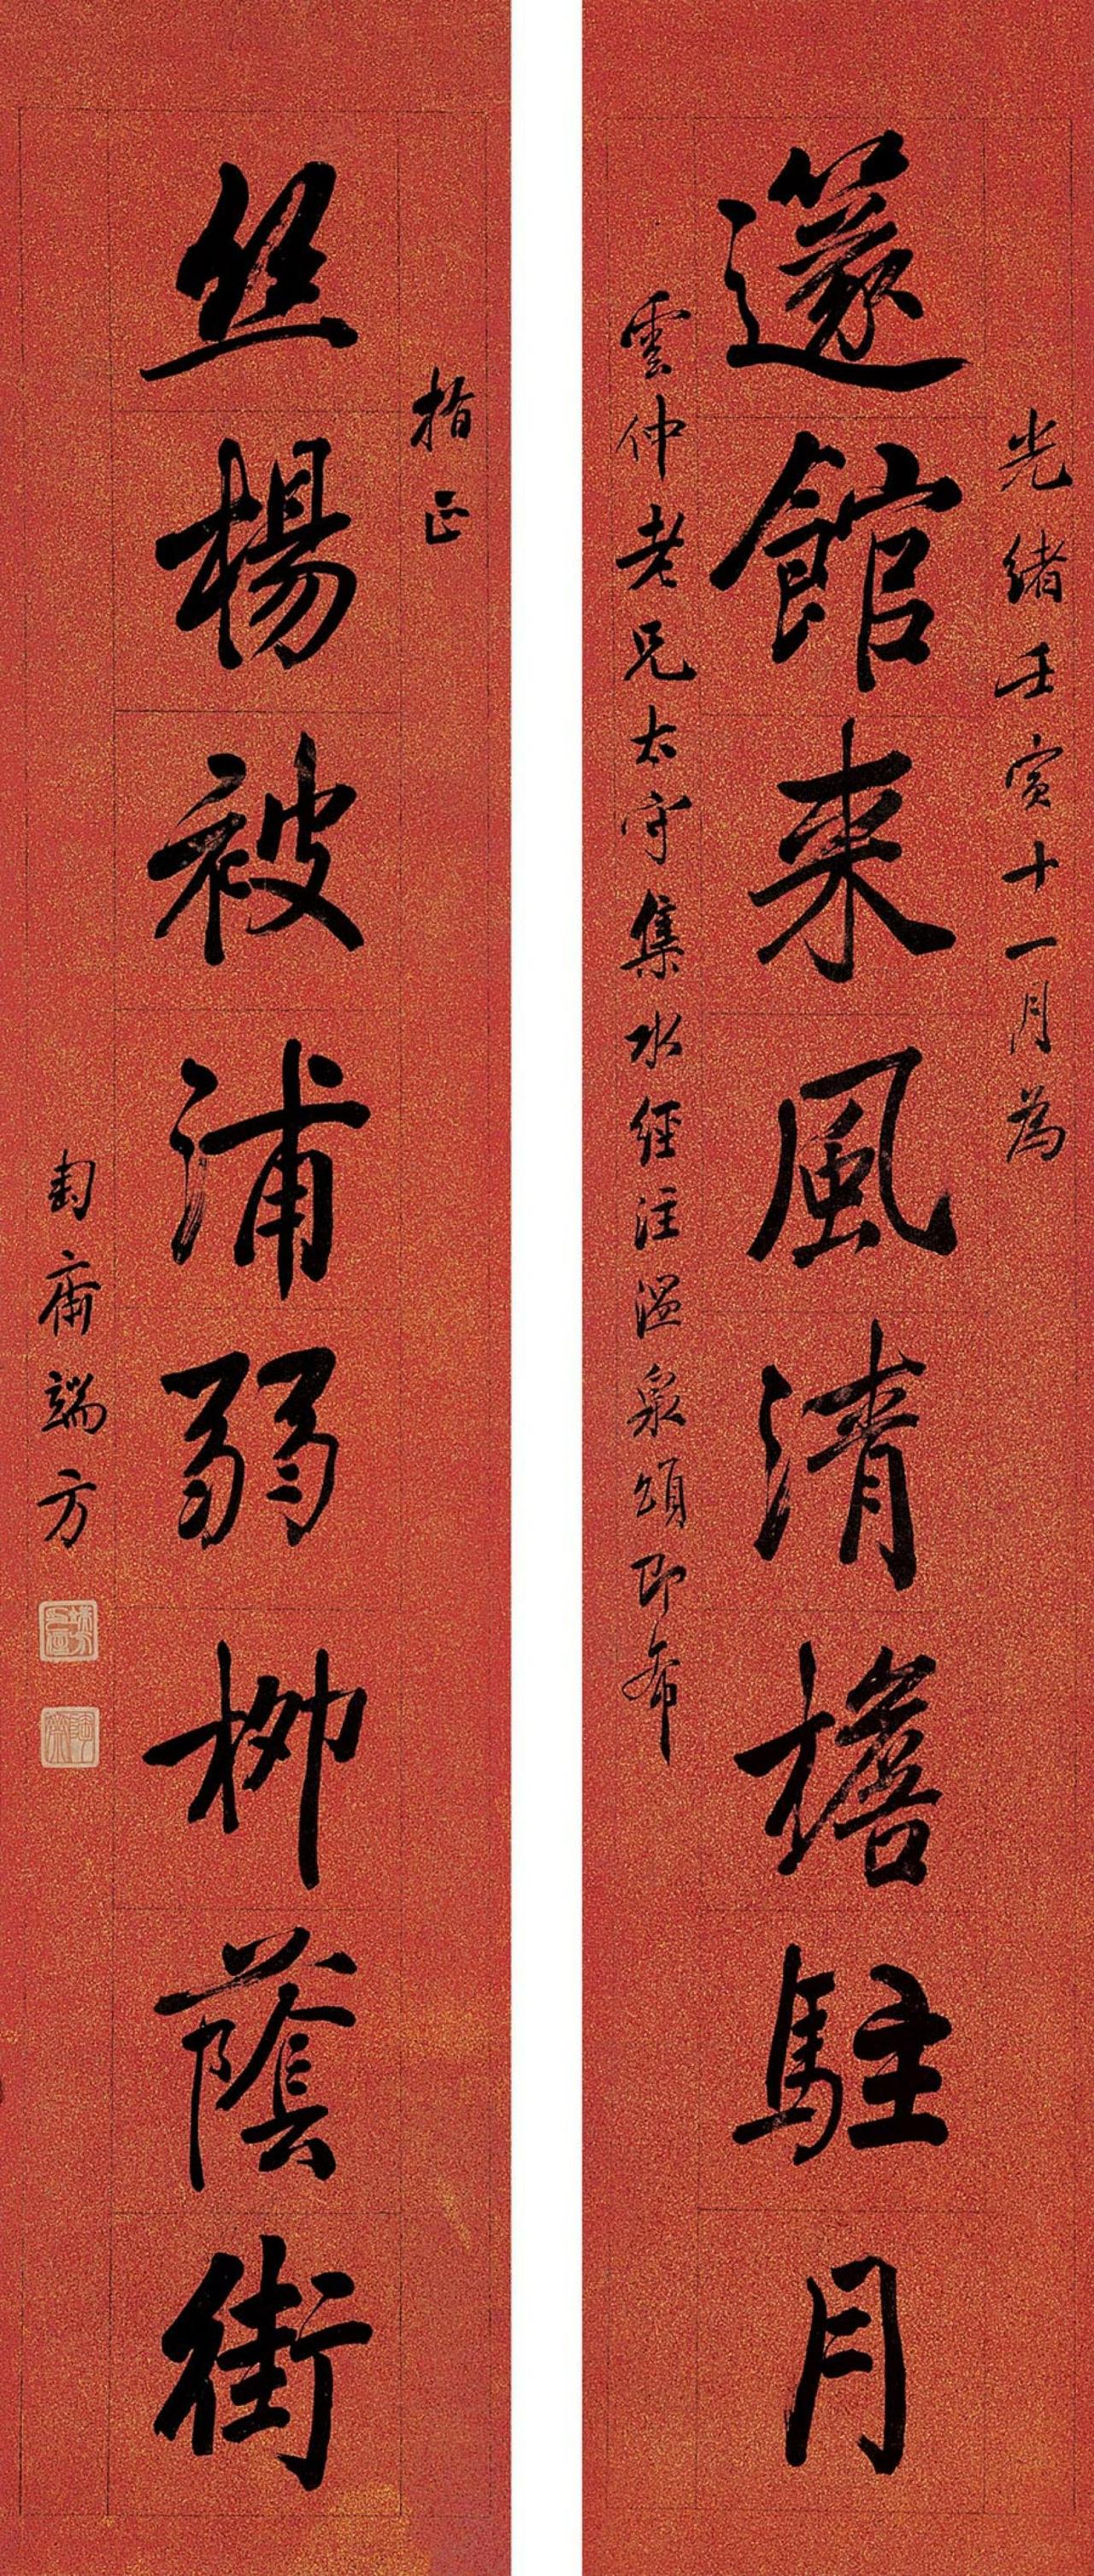 邃館來風清檐駐月
光緒壬寅十一月為
雲仲老兄太守集水經注溫泉頌即希
絲楊被浦弱柳蔭街
指正
匋齋端方